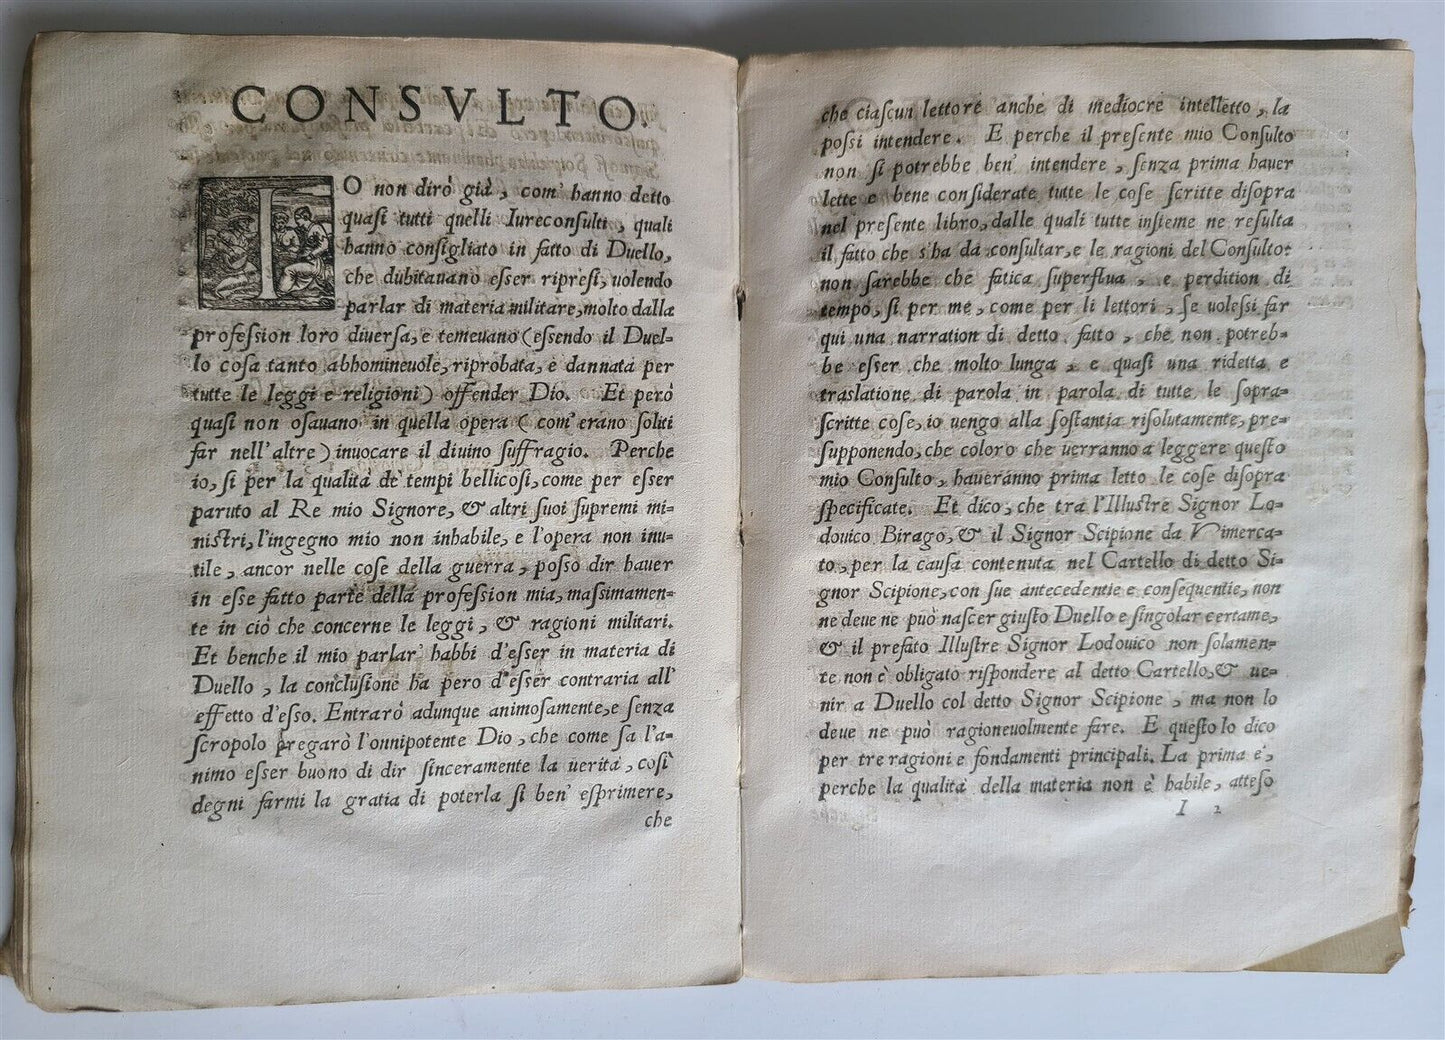 CONSVLTO.
IO non dirò già, com' hanno detto
quasi tutti quelli Iureconsulti, quali
hanno consigliato in fatto di Duello,
che dubitauano esser ripresi, uolendo
parlar di materia militare, molto dalla
profession loro diuersa, e temeuano (essendo il Duel-
lo cosa tanto abhomineuole, riprobata, e dannata per
tutte le leggi e religioni) offender Dio. Et però
quasi non osauano in quella opera (com' erano soliti
far nell' altre) inuocare il diuino suffragio. Perche
io, si per la qualità de' tempi bellicosi, come per esser
paruto al Re mio Signore, & altri suoi supremi mi-
nistri, l'ingegno mio non inhabile, e l'opera non inu-
tile, ancor nelle cose della guerra, posso dir hauer
in esse fatto parte della profession mia, massimamen-
te in ciò che concerne le leggi, & ragioni militari.
Et benche il mio parlar' habbi d'esser in materia di
Duello, la conclusione ha pero d'esser contraria all'
effetto d'esso. Entrarò adunque animosamente, e senza
scropolo pregarò l'onnipotente Dio, che come sa l'a-
nimo esser buono di dir sinceramente la uerità, così
degni farmi la gratia di poterla si ben' esprimere,
che
che ciascun lettore anche di mediocre intelletto, la
possi intendere. E perche il presente mio Consulto
non si potrebbe ben' intendere, senza prima hauer
lette e bene considerate tutte le cose scritte disopra
nel presente libro, dalle quali tutte insieme ne resulta
il fatto che s'ha da consultar, e le ragioni del Consulto:
non sarebbe che fatica superflua, e perdition di
tempo, si per me, come per li lettori, se uolessi far
qui una narration di detto fatto, che non potreb-
be esser che molto lunga, e quasi una ridetta e
traslatione di parola in parola di tutte le sopra-
scritte cose, io uengo alla sostantia risolutamente, pre-
supponendo, che coloro che uerranno a leggere questo
mio Consulto, haueranno prima letto le cose disopra
specificate. Et dico, che tra l'Illustre Signor Lo-
douico Birago, & il Signor Scipione da Vimerca-
to, per la causa contenuta nel Cartello di detto Si-
gnor Scipione, con sue antecedentie e consequentie, non
ne deue ne può nascer giusto Duello e singolar certame,
& il prefato Illustre Signor Lodouico non solamen-
te non è obligato rispondere al detto Cartello, & ue-
nir a Duello col detto Signor Scipione, ma non lo
deue ne può ragioneuolmente fare. E questo lo dico
per tre ragioni e fondamenti principali. La prima e',
perche la qualità della materia non è habile, atteso
I 2